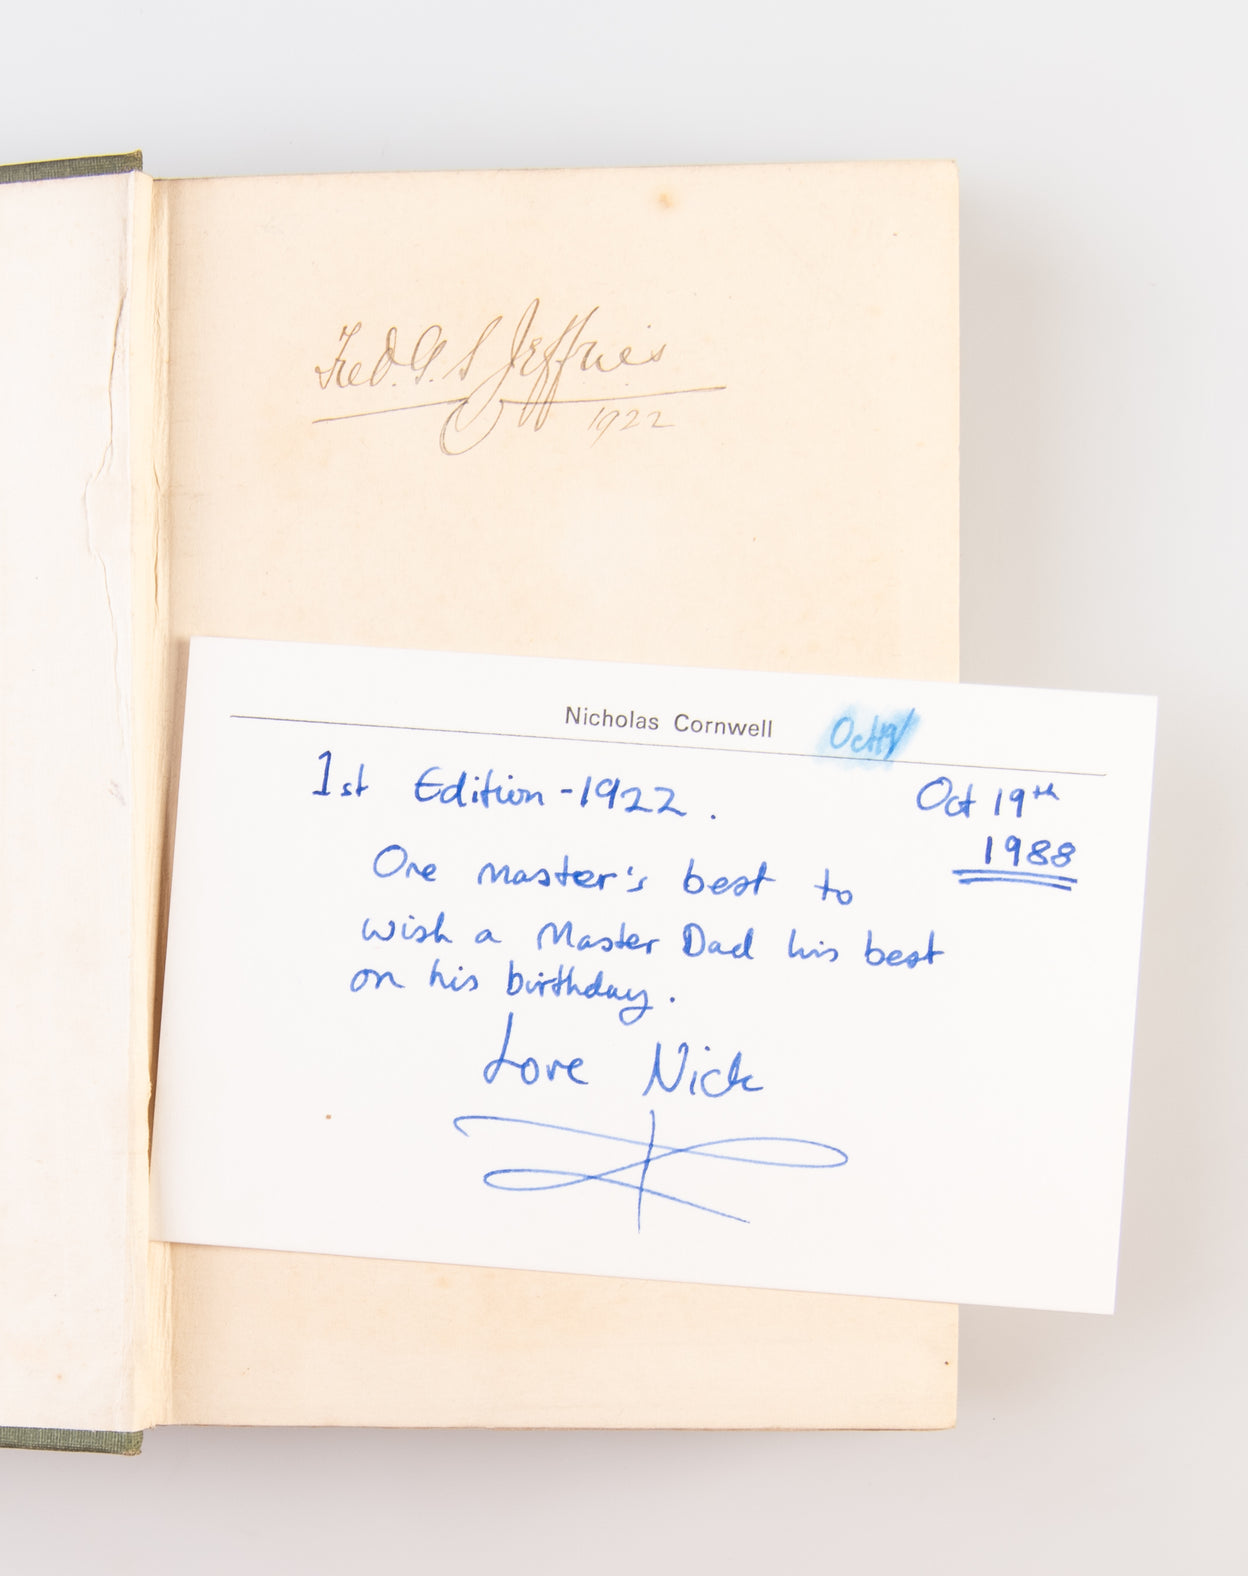 Fred. G. S Jeffries
1922
Nicholas Cornwell
1st Edition - 1922.
Oct 19th
1988
One master's best to
wish a Master Dad his best
on his birthday.
Love Nick